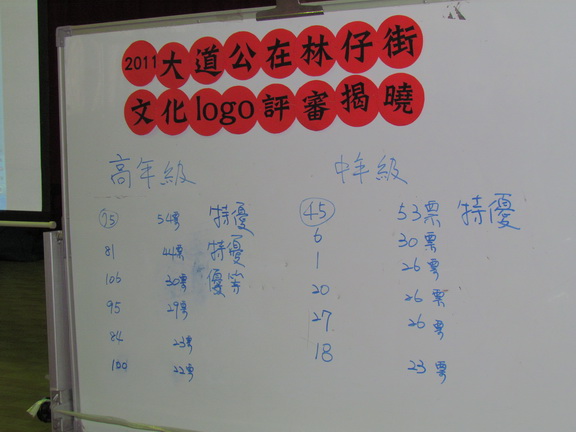 2011大道公在林仔街
文化logo評審揭曉
高年級
75 54票 特優
81 44票 特優
106 30票 優等
95 29票
84 23票
100 22票
中年級
45 53票 特優
6 30票
1 26票
20 26票
27 26票
18 23票